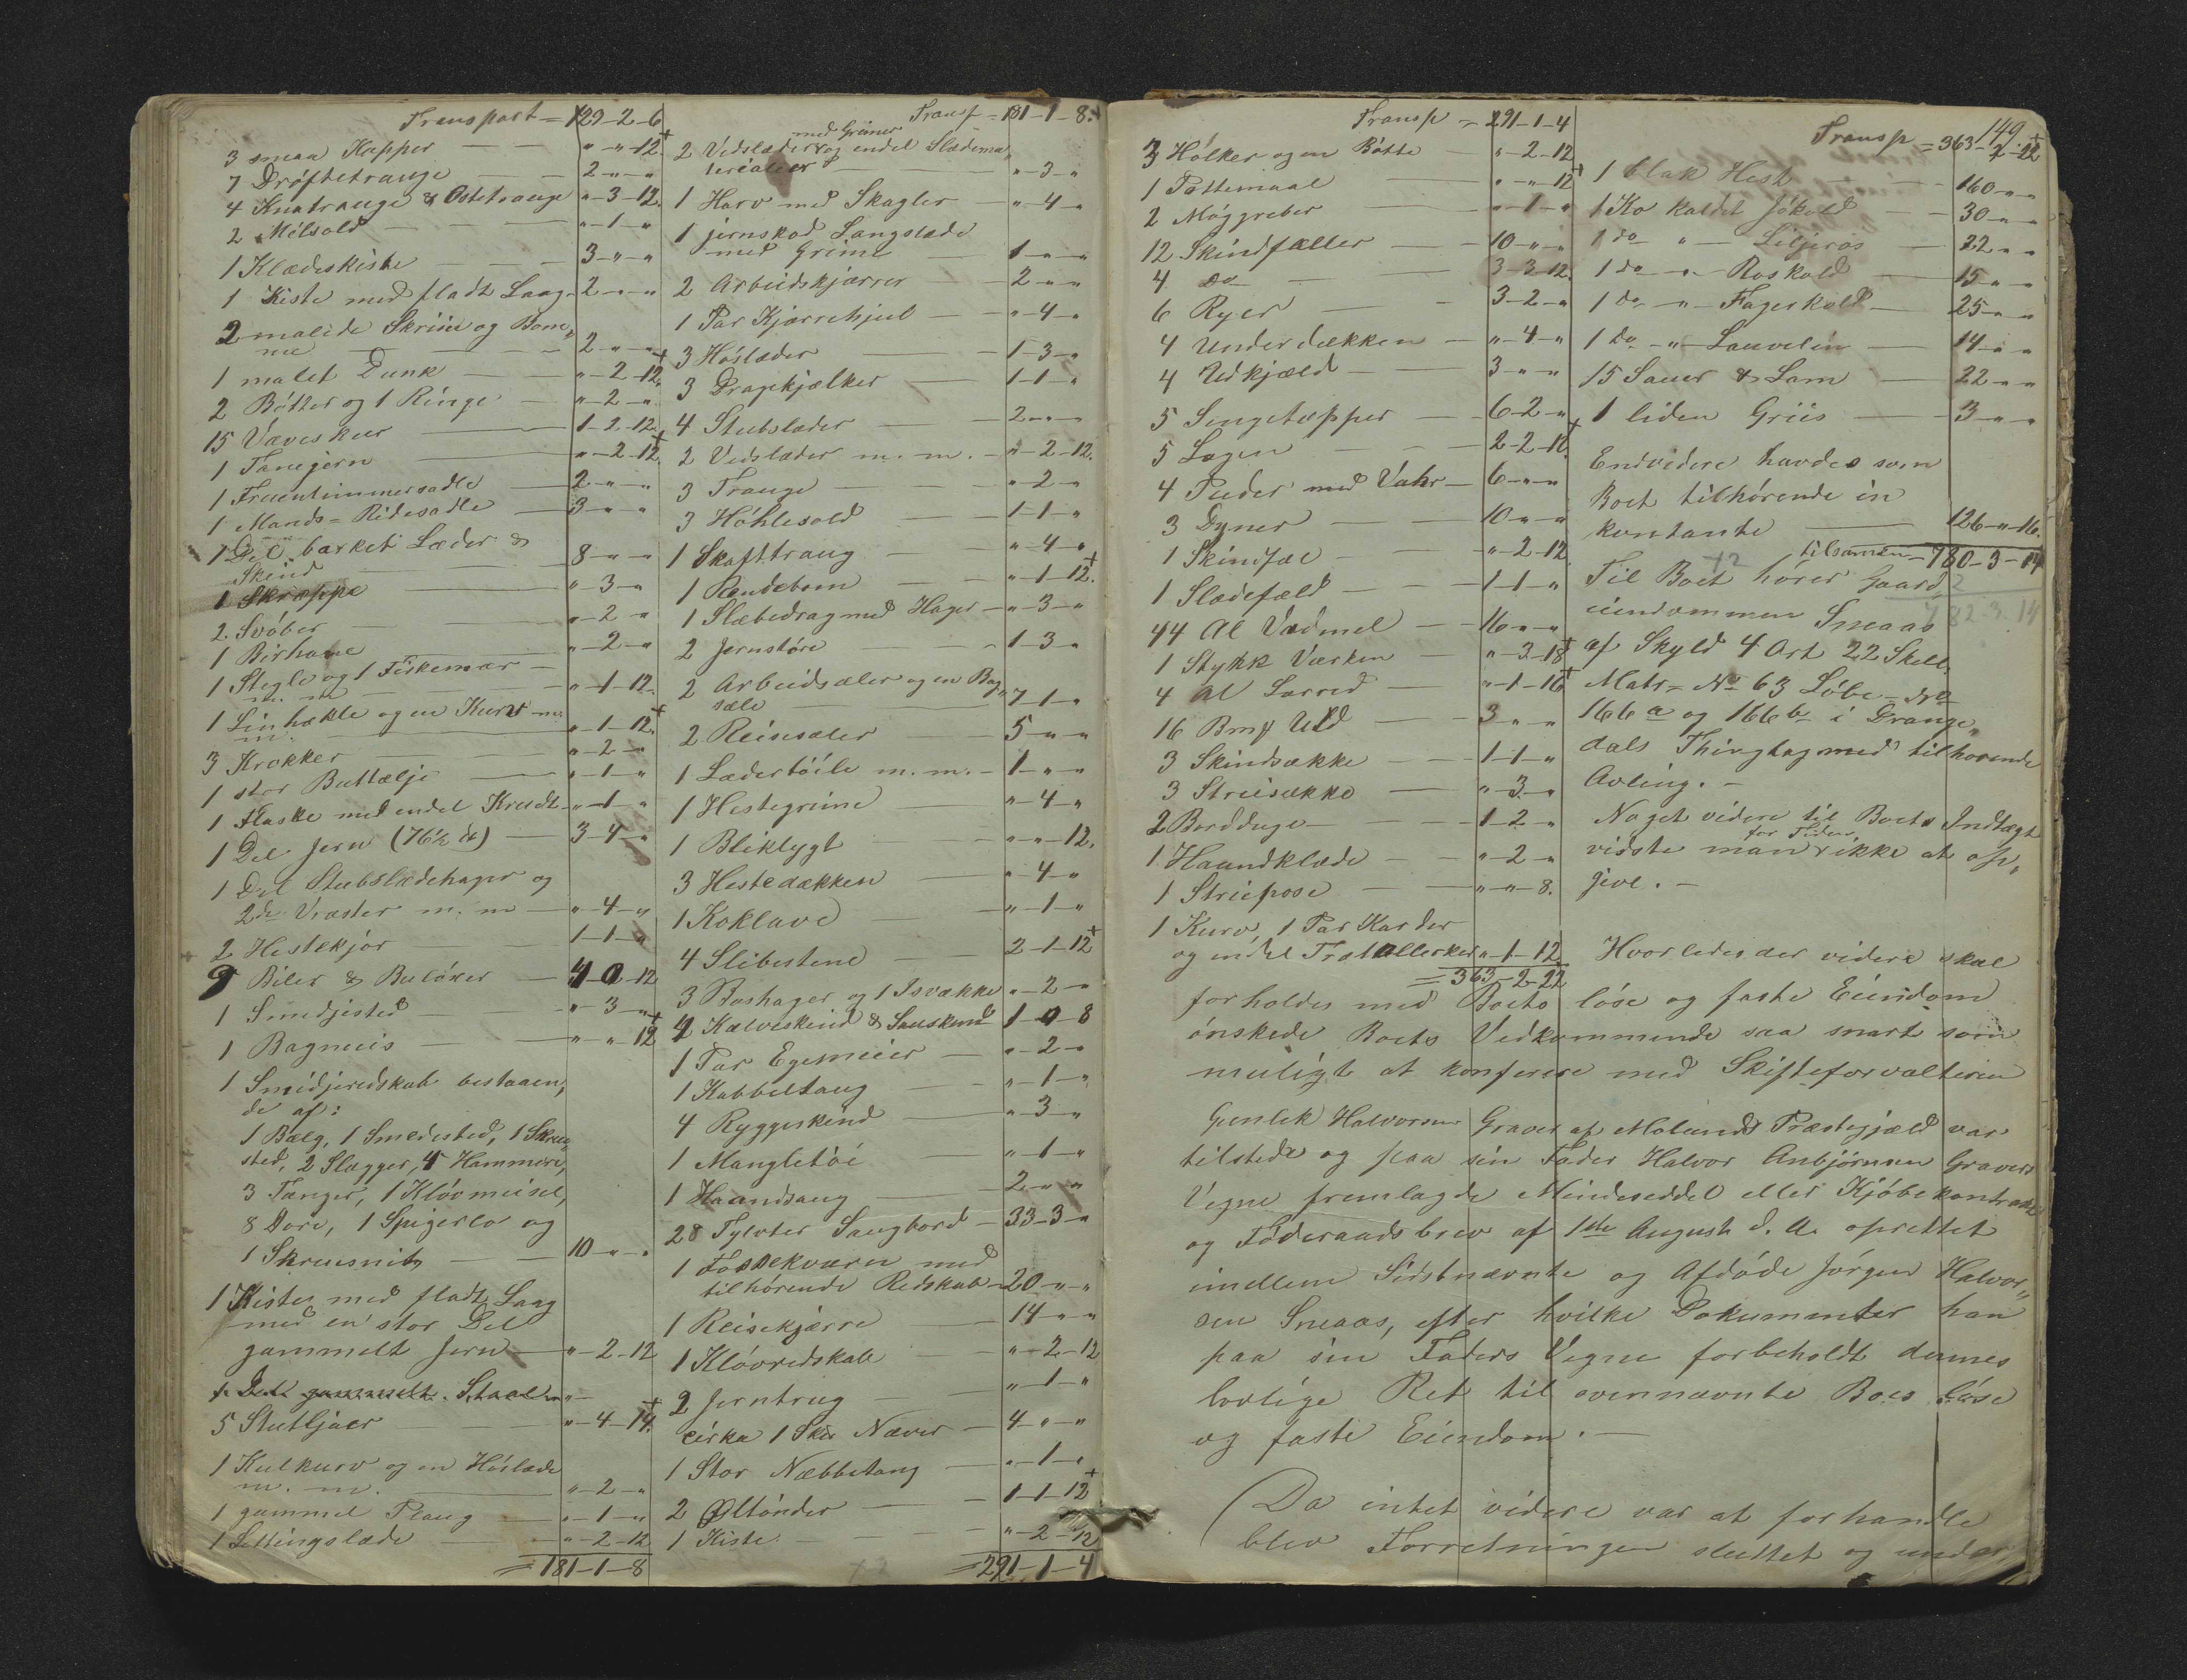 Transport = 129-2-6
3 smaa Kopper — " - " -12.
7 Drøftetrauge — 2 - " - "
4 Knatrauge & Ostetrauge " -3-12.
2 Mélsold — " -1- "
1 Klædeskiste — 3 - " - "
1 Kiste med fladt Laag - 2 - " - "
2 malede Skriin og Bom-
me — 2 - " - "
1 malet Dunk — " -2-12.
2 Bøtter og 1 Ringe — " -2- "
15 Væveskeer — 1-2-12.
1 Tanejern — " -2-12.
1 Fruentimmersadle — 2 - " - "
1 Mands-Ridesadle — 3 - " - "
1 Del barket Læder &
Skind — 8 - " - "
1 Skræppe — " -3- "
2 Svøber — " -2- "
1 Birhane — " -2- "
1 Stegle og 1 Fiskemær
m. m. — " -1-12.
1 Linhækle og en Kurv m.
m. — " -1-12.
3 Krokker — " -2- "
1 stor Buttælje — " -1- "
1 Flaske med endel Krudt - " -1- "
1 Del Jern (76½ ℔) — 3-4- "
1 Del Stubslædehager og
2de Vræster m. m — " -4- "
2 Hestekjør — 1-1- "
9 Biler & Buløxer — 4-0-12
1 Smedjested — " -3- "
1 Bagneis — " - " -12
1 Smidjeredskab bestaaen-
de af:
1 Bælg, 1 Smedested, 1 Skrue-
sted, 2 Slægger, 4 Hammere,
3 Tænger, 1 Kløvmeisel,
8 Dore, 1 Spigerlo og
1 Skruesnit — 10 - " - "
1 Kister med fladt Laag
med en stor Del
gammelt Jern — " -2-12
1 Del gammelt Staal "
5 Stutljaer — " -4-14.
1 Kulkurv og en Høslæde
m. m. — " -2- "
1 gammel Plaug — " -1- "
1 Lettingslæde — " -2-12
= 181-1-8
Transp = 181-1-8.
med Grimer
2 Vedslæder og endel Slædema-
terialier — " -3- "
1 Harv med Skagler — " -4- "
1 jernskod Langslæde
med Grime — 1 - " - "
2 Arbeidskjærrer — 2 - " - "
1 Par Kjærrehjul — " -4- "
3 Høslæder — 1-3- "
3 Dragekjælker — 1-1- "
4 Stubslæder — 2 - " - "
2 Vedslæder m. m. — " -2-12.
3 Trauge — " -2- "
3 Høhlesold — 1-1- "
1 Skafttraug — " -4- "
1 Rendebom — " -1-12.
1 Slæbedrag med Hager — " -3- "
2 Jernstøre — 1-3- "
2 Arbeidsæler og en Bag-
sæle — 7-1- "
2 Reisesæler — 5 - " - "
1 Lædertøile m. m. — 1 - " - "
1 Hestegrime — " -4- "
1 Bliklygt — " - " -12.
3 Hestedækken — " -4- "
1 Koklave — " -1- "
4 Slibestene — 2-1-12
3 Bashager og 1 Isvække " -2- "
4 Kalveskind & Saueskind 1-0-8
1 Par Egemeier — " -2- "
1 Kabbeltaug — " -1- "
4 Ryggeskind — " -3- "
1 Mangletøi — " -1- "
1 Haandsaug — 2 - " - "
28 Tylvter Saugbord — 33-3- "
1 Fossekværn med
tilhørende Redskab — 20 - " - "
1 Reisekjærre — 14 - " - "
1 Kløvredskab — " -2-12
2 Jerntrug — " -1- "
cirka 1 Skit Næver — 4 - " - "
1 Stor Næbbetang — " -1- "
2 Øltønder — 1-1-12
1 Kiste — " -2-12
= 291-1-4
Transp = 291-1-4
3 Hølker og en Bøtte — " -2-12
1 Pottemaal — " - " -12
2 Møggreber — " -1- "
12 Skindfæller — 10 - " - "
4 do — 3-3-12.
6 Ryer — 3-2- "
4 Underdækken — " -4- "
4 Udkjæld — 3 - " - "
5 Sengetæpper — 6-2- "
5 Lagen — 2-2-12.
4 Puder med Vahr — 6 - " - "
3 Dyner — 10 - " - "
1 Skindfæl — " -2-12
1 Slædefæld — 1-1- "
44 Al Vadmel — 16 - " - "
1 Stykk Værken — " -3-18
4 Al Lærred — " -1-16
16 Bmk Uld — 3 - " - "
3 Skindsække — 1-1- "
3 Striesække — " -3- "
2 Bordduge — 1-2- "
1 Haandklæde — " -2- "
1 Striepose — " - " -8.
1 Kurv, 1 Par Karder
og endel Trætallerker " -1-12
= 363-2-22
149.
Transp = 363-2-22
1 blak Hest — 160 - " - "
1 Ko kaldet Jøkold — 30 - " - "
1 do " — Liljeros — 22 - " - "
1 do - " - Roskold — 15 - " - "
1 do - " - Fagerkold — 25 - " - "
1 do - " - Lauvelin — 14 - " - "
15 Sauer & Lam — 22 - " - "
1 liden Griis — 3 - " - "
Endvidere havdes som
Boet tilhørende in
kontante — 126 - " -16.
tilsammen — 780-3-14
782-3-14
Til Boet hører Gaard-
eiendommen Sneaas
af Skyld 4 Ort 22 Skill.
Matr = No 63 Løbe-No
166 a og 166 b i Drange-
dals Thinglag med tilhørende
Avling. –
Noget videre til Boets Indtægt
for Tiden
vidste man ikke at op-
give. –
Hvorledes der videre skal
forholdes med Boets løse og faste Eiendom
ønskede Boets Vedkommende saa snart som
muligt at konferere med Skifteforvalteren
Gunlek Halvorsen Graver af Molands Præstegjæld var
tilstede og paa sin Fader Halvor Anbjørnsen Gravers
Vegne fremlagde Mindeseddel eller Kjøbekontrakt
og Føderaadsbrev af 1ste August d. A. oprettet
imellem Sidstnævnte og Afdøde Jørgen Halvor-
sen Sneaas, efter hvilke Dokumenter han
paa sin Faders Vegne forbeholdt dennes
lovlige Ret til ovennævnte Boes løse
og faste Eiendom. —
Da intet videre var at forhandle
blev Forretningen sluttet og under